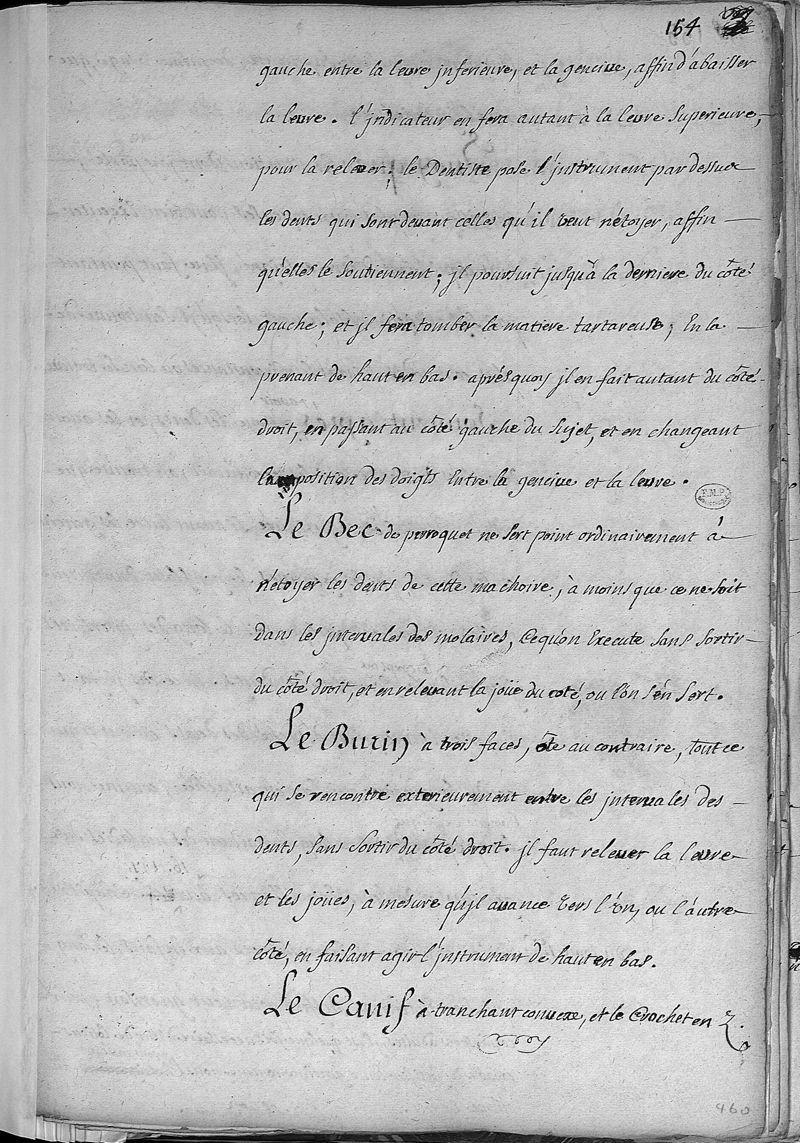 154
gauche entre la levre inferieure, et la gencive, affin d'abaisser
la levre. l'jndicateur en fera autant à la levre Superieure,
pour la relever; le Dentiste pose l'jnstrument par dessus
les dents qui sont devant celles qu'il veut nétoyer, affin
qu'elles le soutiennent; jl poursuit jusqu'à la derniere du côté
gauche; et jl fera tomber la matiere tartareuse, En la
prenant de haut en bas. aprés quoy jl en fait autant du côté
droit, en passant au côté gauche du sujet, et en changeant
la position des doigts Entre la gencive et la levre.
E.M.P.
Le Bec de perroquet ne sert point ordinairement à
nétoyer les dents de cette machoire, à moins que ce ne soit
dans les jntervales des molaires, Cequ'on Execute sans sortir
du côté droit, et en relevant la joüe du coté, ou l'on s'en sert.
Le Burin à trois faces, ôte au contraire, tout ce
qui se rencontre exterieurement entre les jntervales des
dents, sans sortir du côté droit. jl faut relever la levre
et les joües, à mesure qu'jl avance Vers l'Un, ou l'autre
côté, en faisant agir l'jnstrument de haut en bas.
Le Canif à tranchant convexe, et le Crochet en Z.
460